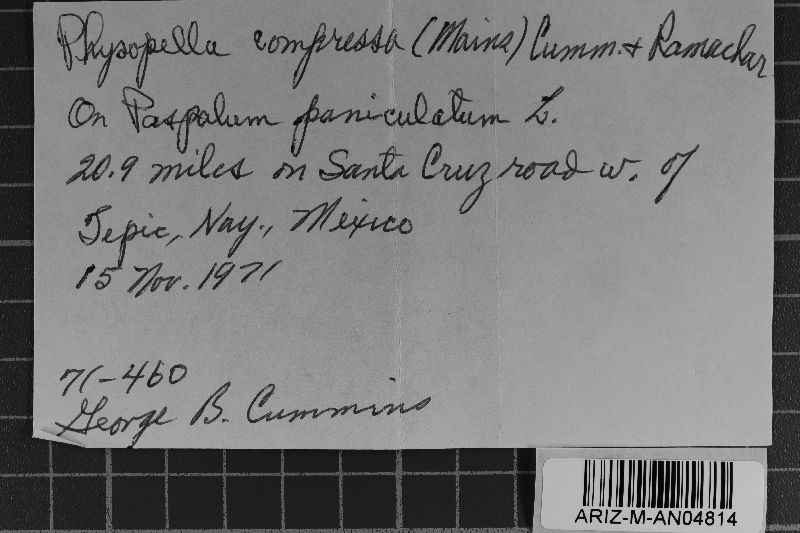 Physopella compressa (Mains) Cumm. & Ramachar
On Paspalum paniculatum L.
20.9 miles on Santa Cruz road w. of
Tepic, Nay., Mexico
15 Nov. 1971
71-460
George B. Cummins
ARIZ-M-AN04814